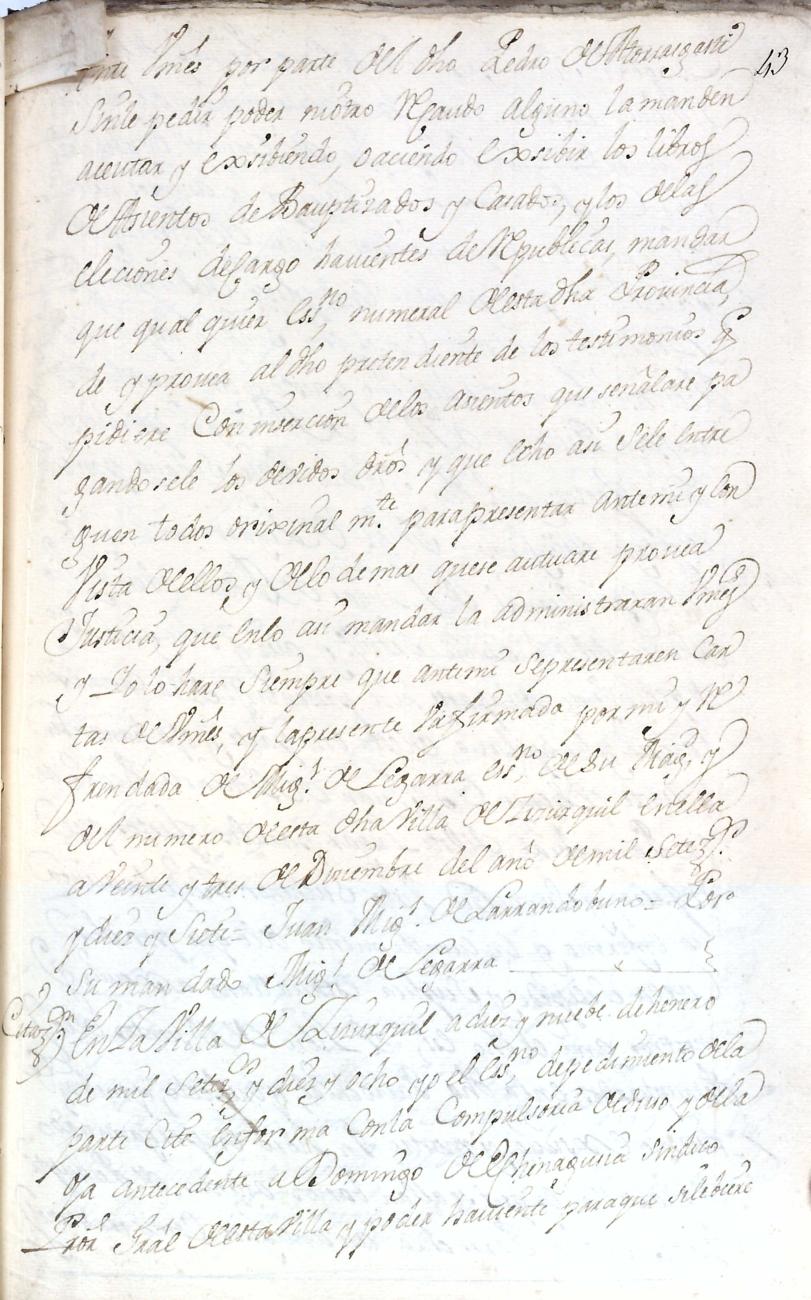 43
ente Vmês por parte del dho Pedro de
Sinle pedir poder niotro Recaudo alguno la manden
aceutar y exsibiendo, o aciendo exsibir los libros
de Asientos de Bauptizados y Casados, y los de las
elecciones de Cargo havientes de Republicas, mandar
que qual quier essno, numeral de esta dha Provincia,
de y provea al dho pretendiente de los testimonios q
pidiere Con insercion de los asientos que señalare pa
gandosele los devidos drôs y que echo asi se le entre
guen todos orixinal mte para presentar ante mi y Con
Vista de ellos, y de lo demas que se autuare provea
Justicia, que en lo asi mandar la administraran Vmês
y Yo lo hare Siempre que ante mi se presentaren Car
tas de Vmês, y la presente Va firmada por mi y Re
frendada de Migl de Legarra essno de Su Mag, y
del numero de esta dha Villa de Lizurquil en ella
a Veinte y tres de Diziembre del año de mil Setezos
y diez y Siete = Juan Migl de Larrandobuno = Por
Su man dado Migl de Legarra
Citazon En La Villa de Lizurquil a diez y nuebe de henero
de mil Setezos y diez y ocho yo el essno, de pedimiento de la
parte Cite en forma Con la Compulsoria de suso y de la
oja antecedente a Domingo de Echenagusia Sindico
Pror Grâl de esta Villa y poder haviente para que si le diere